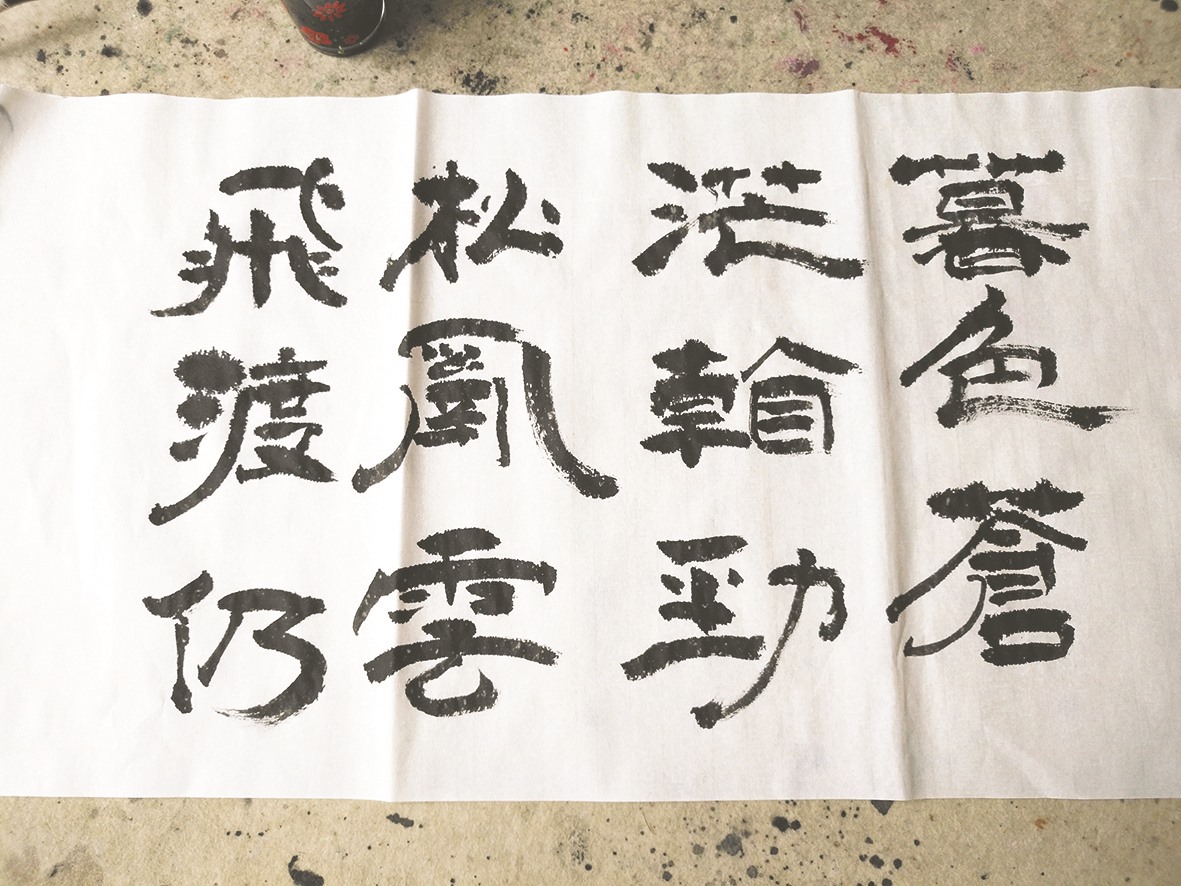 暮色蒼
茫看勁
松亂雲
飛渡仍